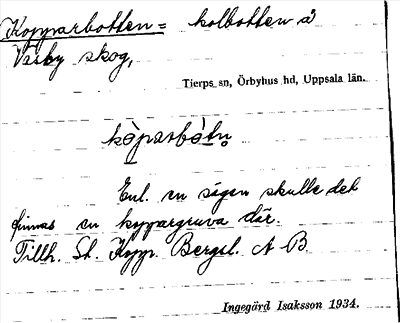 Kopparbotten = kolbotten å
Väsby skog,
Tierps sn, Örbyhus hd, Uppsala län.
kòparbòtn̥
Enl. en sägen skulle det
finnas en koppargruva där.
Tillh. St. Kopp. Bergsl. A B
Ingegärd Isaksson 1934.